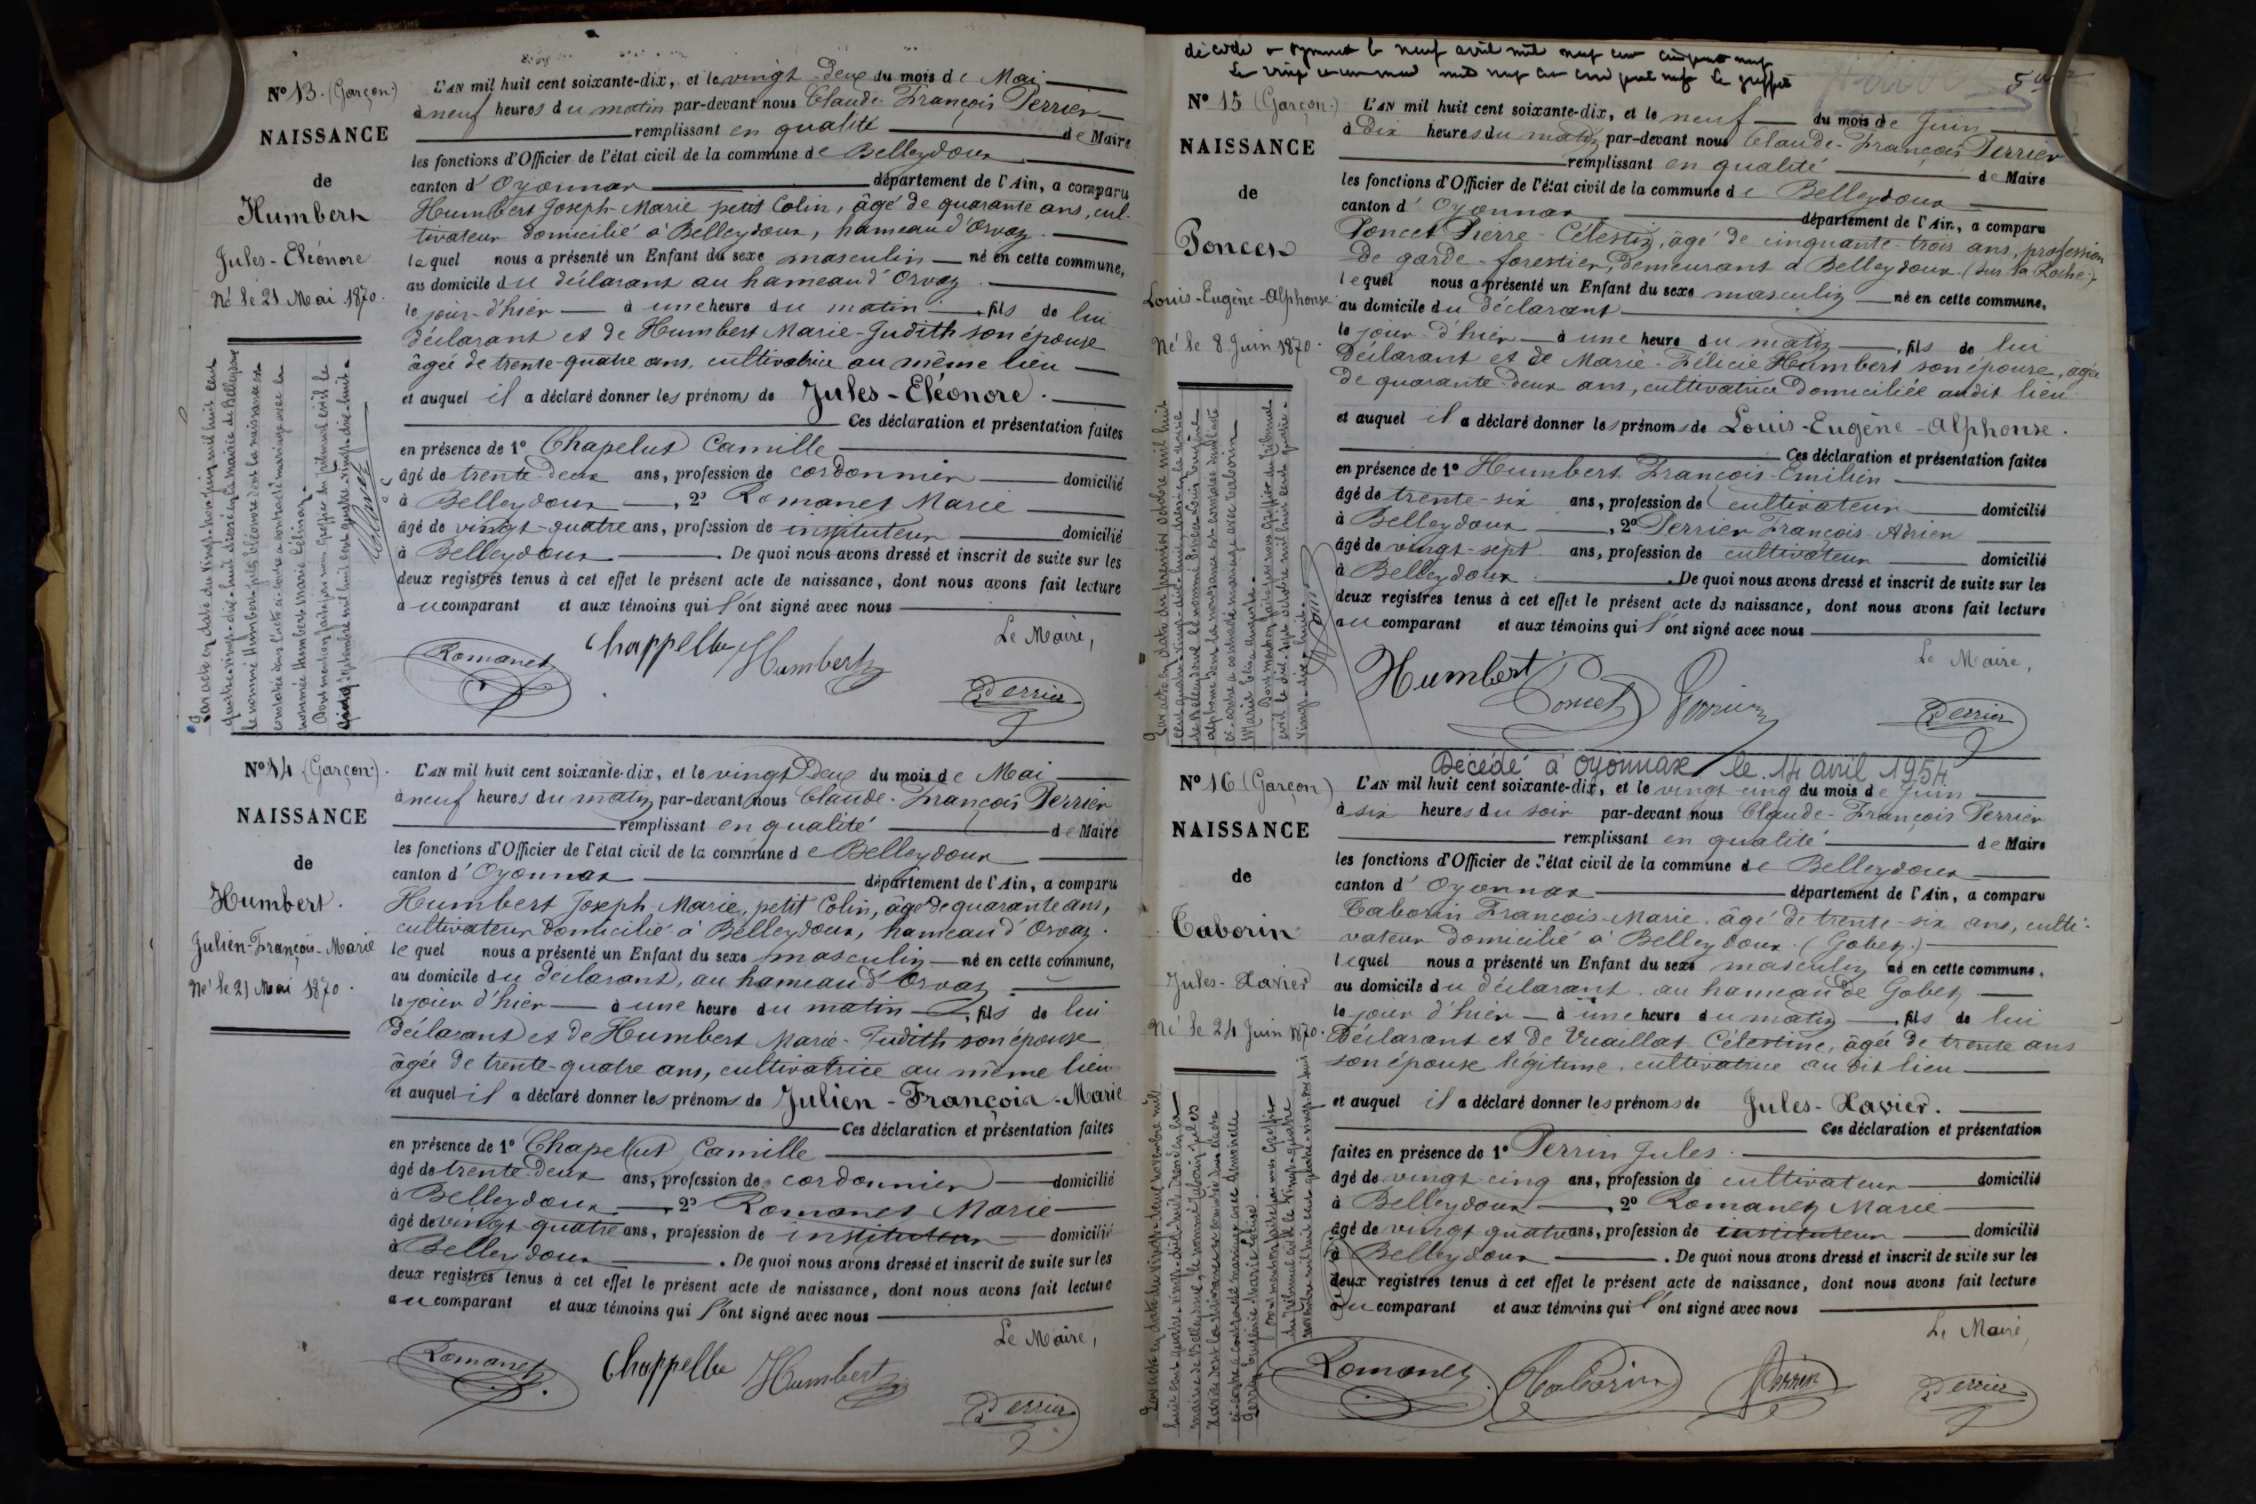 N° 13. (Garçon)
NAISSANCE
de
Humbert
Jules-Eléonore
Né le 21 Mai 1870.
L'AN mil huit cent soixante-dix, et le vingt-deux du mois de Mai
à neuf heures du matin par-devant nous Claude-François Perrier
remplissant en qualité de Maire
les fonctions d'Officier de l'état civil de la commune de Belleydoux
canton d'Oyonnax département de l'Ain, a comparu
Humbert Joseph-Marie petit Colin, âgé de quarante ans, cul-
tivateur domicilié à Belleydoux, hameau d'Orvaz.
lequel nous a présenté un Enfant du sexe masculin né en cette commune,
au domicile du déclarant au hameau d'Orvaz
le jour d'hier à une heure du matin, fils de lui
déclarant et de Humbert Marie-Judith son épouse
âgée de trente-quatre ans, cultivatrice au même lieu
et auquel il a déclaré donner les prénoms de Jules-Eléonore.
Ces déclaration et présentation faites
en présence de 1° Chapelut Camille
âgé de trente-deux ans, profession de cordonnier domicilié
à Belleydoux, 2° Romanet Marie
âgé de vingt-quatre ans, profession de instituteur domicilié
à Belleydoux. De quoi nous avons dressé et inscrit de suite sur les
deux registres tenus à cet effet le présent acte de naissance, dont nous avons fait lecture
au comparant et aux témoins qui l'ont signé avec nous
Le Maire,
Romanet Chappellu Humbert
Perrier
Par acte en date du vingt-neuf juin mil huit cent
quatre-vingt-dix-huit dressé en la mairie de Belleydoux
le nommé Humbert Jules Eléonore dont la naissance est
constatée dans l'acte ci-contre a contracté mariage avec la
nommée Humbert Marie Célina.
Dont mention faite par nous Greffier du Tribunal civil le
septembre mil huit cent quatre-vingt-dix-huit
N° 14 (Garçon).
NAISSANCE
de
Humbert.
Julien-François-Marie
Né le 21 Mai 1870.
L'AN mil huit cent soixante-dix, et le vingt-deux du mois de Mai
à neuf heures du matin par-devant nous Claude-François Perrier
remplissant en qualité de Maire
les fonctions d'Officier de l'état civil de la commune de Belleydoux
canton d'Oyonnax département de l'Ain, a comparu
Humbert Joseph-Marie, petit Colin, âgé de quarante ans,
cultivateur domicilié à Belleydoux, hameau d'Orvaz.
lequel nous a présenté un Enfant du sexe masculin né en cette commune,
au domicile du déclarant, au hameau d'Orvaz
le jour d'hier à une heure du matin, fils de lui
déclarant et de Humbert Marie-Judith son épouse
âgée de trente-quatre ans, cultivatrice au même lieu
et auquel il a déclaré donner les prénoms de Julien-François-Marie
Ces déclaration et présentation faites
en présence de 1° Chapellut Camille
âgé de trente-deux ans, profession de cordonnier domicilié
à Belleydoux, 2° Romanet Marie
âgé de vingt-quatre ans, profession de instituteur domicilié
à Belleydoux. De quoi nous avons dressé et inscrit de suite sur les
deux registres tenus à cet effet le présent acte de naissance, dont nous avons fait lecture
au comparant et aux témoins qui l'ont signé avec nous
Le Maire,
Romanet Chappellu Humbert
Perrier
décédé à Oyonnax le neuf avril mil neuf cent cinquante neuf
Le vingt mil neuf cent cinquante neuf Le greffier
5
N° 15 (Garçon.)
NAISSANCE
de
Poncet
Louis-Eugène-Alphonse
Né le 8 Juin 1870.
L'AN mil huit cent soixante-dix, et le neuf du mois de Juin
à Dix heures du matin par-devant nous Claude-François Perrier
remplissant en qualité de Maire
les fonctions d'Officier de l'état civil de la commune de Belleydoux
canton d'Oyonnax département de l'Ain, a comparu
Poncet Pierre-Célestin, âgé de cinquante-trois ans, profession
de garde-forestier, demeurant à Belleydoux (sur la Roche).
lequel nous a présenté un Enfant du sexe masculin né en cette commune,
au domicile du déclarant
le jour d'hier à une heure du matin, fils de lui
déclarant et de Marie-Félicie Humbert son épouse, âgée
de quarante-deux ans, cultivatrice domiciliée audit lieu
et auquel il a déclaré donner les prénoms de Louis-Eugène-Alphonse.
Ces déclaration et présentation faites
en présence de 1° Humbert François-Emilien
âgé de trente-six ans, profession de cultivateur domicilié
à Belleydoux, 2° Perrier François-Adrien
âgé de vingt-sept ans, profession de cultivateur domicilié
à Belleydoux. De quoi nous avons dressé et inscrit de suite sur les
deux registres tenus à cet effet le présent acte de naissance, dont nous avons fait lecture
au comparant et aux témoins qui l'ont signé avec nous
Le Maire,
Humbert Poncet Perrier
Perrier
Par acte en date du premier octobre mil huit
cent quatre-vingt-dix-huit, dressé en la mairie
de Belleydoux le nommé Poncet Louis Eugène
Alphonse dont la naissance est constatée dans l'acte
ci-contre a contracté mariage avec Taborin
Marie
Dont mention faite par nous Greffier du Tribunal
civil le dix-sept octobre mil huit cent quatre-
vingt-dix-huit.
Décédé à Oyonnax le 14 avril 1954
N° 16 (Garçon)
NAISSANCE
de
Taborin
Jules-Xavier
Né le 24 Juin 1870.
L'AN mil huit cent soixante-dix, et le vingt cinq du mois de Juin
à six heures du soir par-devant nous Claude-François Perrier
remplissant en qualité de Maire
les fonctions d'Officier de l'état civil de la commune de Belleydoux
canton d'Oyonnax département de l'Ain, a comparu
Taborin François-Marie, âgé de trente-six ans, culti-
vateur domicilié à Belleydoux (Gobet.)
lequel nous a présenté un Enfant du sexe masculin né en cette commune,
au domicile du déclarant au hameau de Gobet
le jour d'hier à une heure du matin, fils de lui
déclarant et de Vuaillat Célestine, âgée de trente ans
son épouse légitime, cultivatrice au dit lieu
et auquel il a déclaré donner les prénoms de Jules-Xavier.
Ces déclaration et présentation
faites en présence de 1° Perrin Jules
âgé de vingt cinq ans, profession de cultivateur domicilié
à Belleydoux, 2° Romanet Marie
âgé de vingt quatre ans, profession de instituteur domicilié
à Belleydoux. De quoi nous avons dressé et inscrit de suite sur les
deux registres tenus à cet effet le présent acte de naissance, dont nous avons fait lecture
au comparant et aux témoins qui l'ont signé avec nous
Le Maire,
Romanet Taborin Perrin
Perrier
Par acte en date du vingt-deux novembre mil
huit cent quatre-vingt-dix-huit dressé en la
mairie de Belleydoux, le nommé Taborin Jules
Xavier dont la naissance est constatée dans l'acte
ci-contre a contracté mariage avec demoiselle
Perrin Marie
Dont mention faite par nous Greffier
du Tribunal civil le vingt-quatre